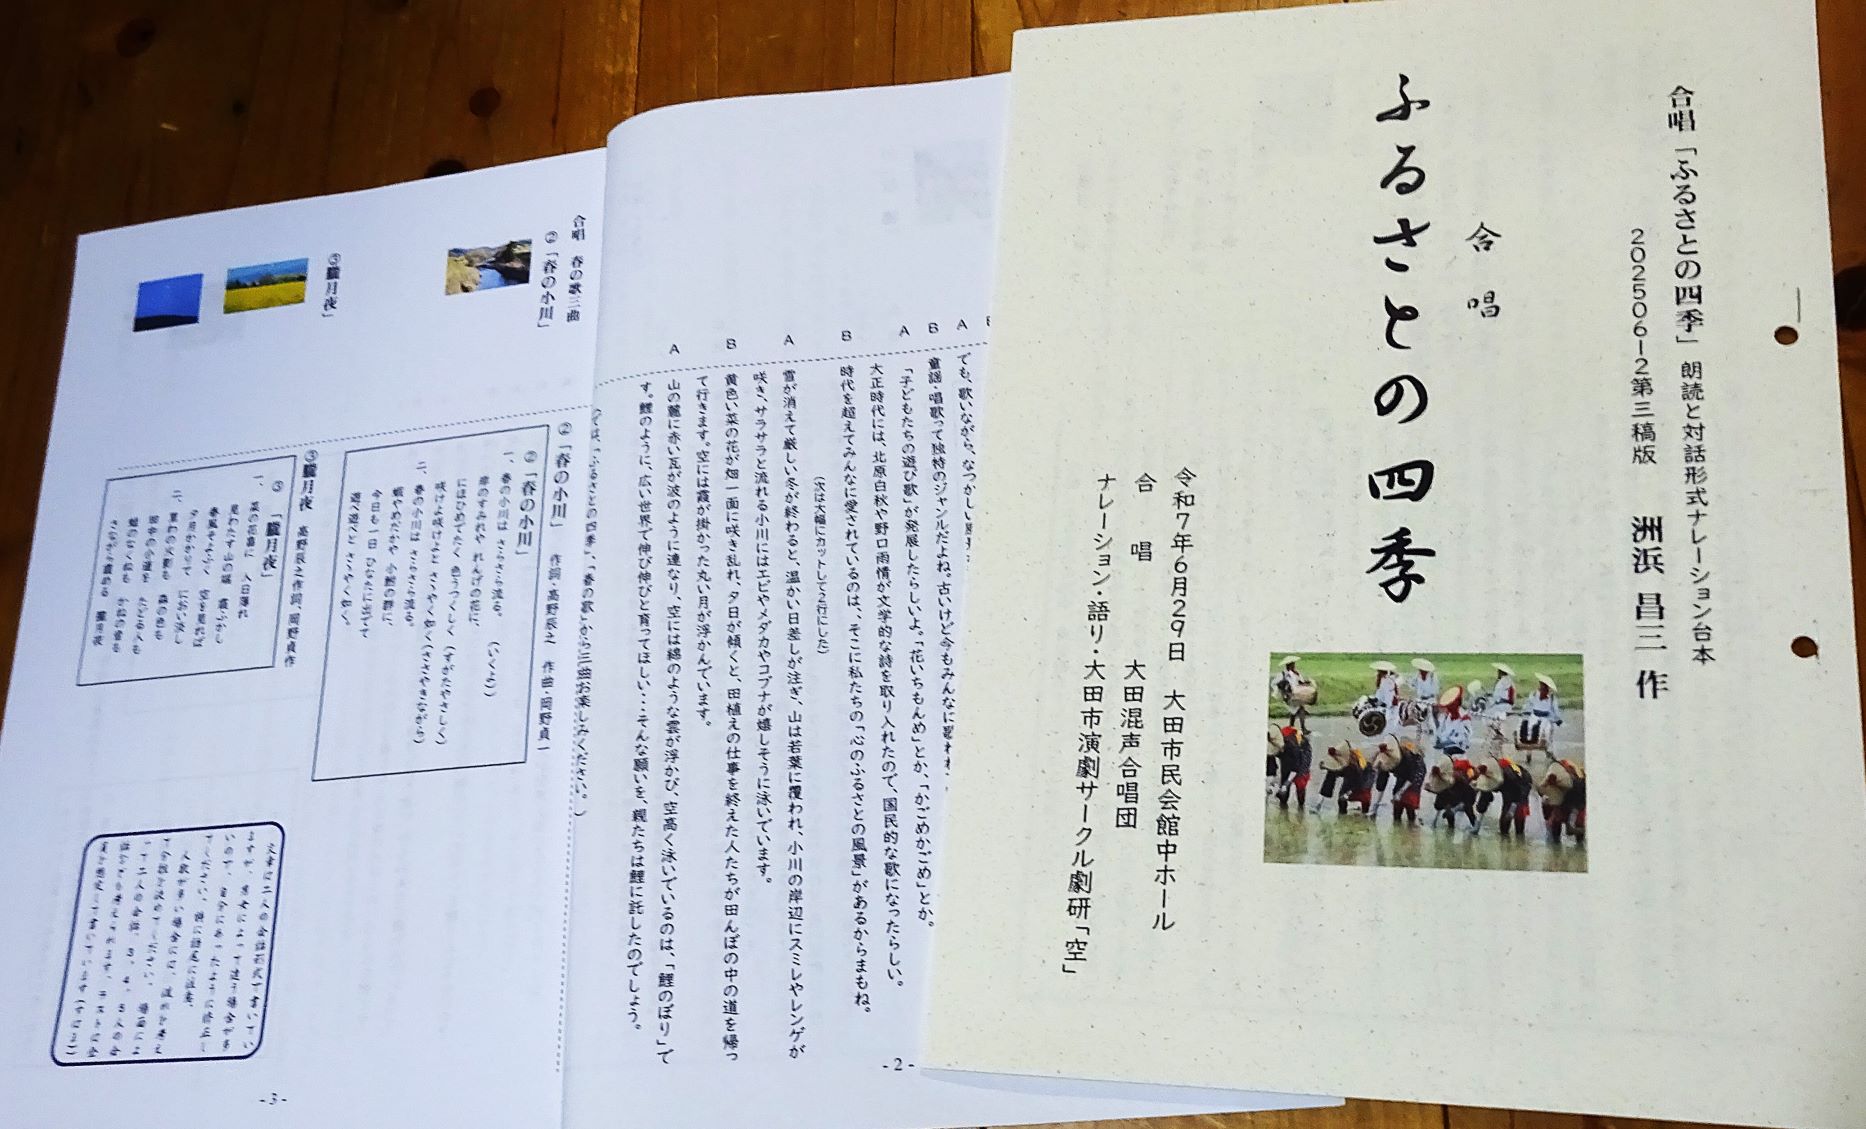 合唱「ふるさとの四季」 朗読と対話形式ナレーション台本
20250612第三稿版 洲浜 昌三 作
合唱
ふるさとの四季
令和7年6月29日 大田市民会館中ホール
合唱 大田混声合唱団
ナレーション・語り・大田市演劇サークル劇研「空」
A
でも、歌いながら、なつかしい
B
童謡・唱歌って独特のジャンルだよね。古いけど今もみんなに歌われ
A
「子どもたちの遊び歌」が発展したらしいよ。「花いちもんめ」とか、「かごめかごめ」とか。
大正時代には、北原白秋や野口雨情が文学的な詩を取り入れたので、国民的な歌になったらしい。
B
時代を超えてみんなに愛されているのは、そこに私たちの「心のふるさとの風景」があるからまもね。
(次は大幅にカットして2行にした)
A
雪が消えて厳しい冬が終わると、温かい日差しが注ぎ、山は若葉に覆われ、小川の岸辺にスミレやレンゲが
咲き、サラサラと流れる小川にはエビやメダカやコブナが嬉しそうに泳いでいます。
B
黄色い菜の花が畑一面に咲き乱れ、夕日が傾くと、田植えの仕事を終えた人たちが田んぼの中の道を帰っ
て行きます。空には霞が掛かった丸い月が浮かんでいます。
A
山の麓に赤い瓦が波のように連なり、空には綿のような雲が浮かび、空高く泳いでいるのは、「鯉のぼり」で
す。鯉のように、広い世界で伸び伸びと育ってほしい・・・そんな願いを、親たちは鯉に託したのでしょう。
では、「ふるさとの四季」、「春の歌」から三曲お楽しみください。)
- 2 -
合唱 春の歌三曲
②「春の小川」
②「春の小川」 作詞・高野辰之 作曲・岡野貞一
②「春の小川」
一、春の小川は さらさら流る。
岸のすみれや れんげの花に、
にほひめでたく 色うつくしく
咲けよ咲けよと ささやく如く
二、春の小川は さらさら流る。
蝦やめだかや 小鮒の群に、
今日も一日 ひなたに出でて
遊べ遊べと ささやく如く。
③朧月夜」
③朧月夜 高野辰之作詞、岡野貞作
③「朧月夜」
一、菜の花畠に 入日薄れ
見わたす山の端 霞ふかし
春風そよふく 空を見れば
夕月かかりて におい淡し
二、里わの火影も 森の色も
田中の小道を たどる人も
蛙のなくねも かねの音も
さながら霞める 朧月夜
- 3 -